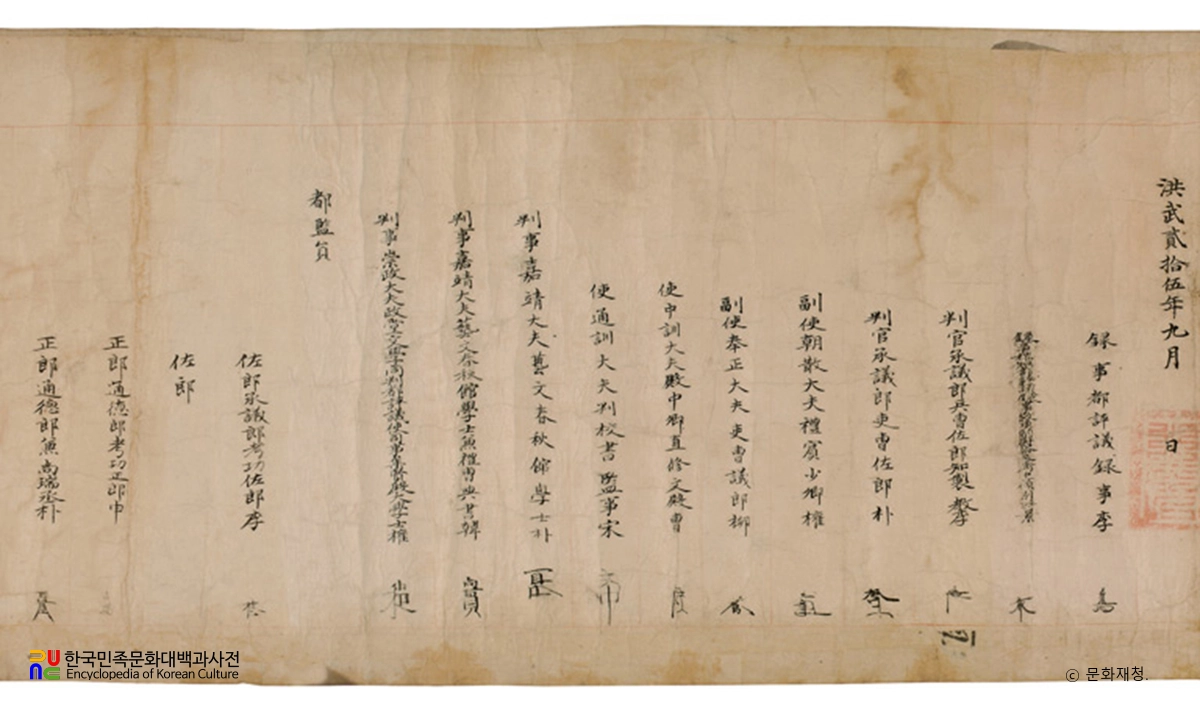 洪武貳拾伍年九月 日
錄事都評議錄事李
判官承議郎兵曹佐郎知製敎李
判官承議郎吏曹佐郎朴
副使朝散大夫禮賓少卿權
副使奉正大夫吏曹議郎柳
使中訓大夫殿中卿直修文殿曹
使通訓大夫判校書監事宋
判事嘉靖大夫藝文春秋館學士朴
判事嘉靖大夫藝文春秋館學士兼禮曹典書韓
判事崇政大夫政堂文學同判都評議使司事 大學士權
都監員
佐郎承議郎考功佐郎李
佐郎
正郎通德郎考功正郎申
正郎通德郎兼尙瑞丞朴
한국민족문화대백과사전
Encyclopedia of Korean Culture
ⓒ 문화재청.